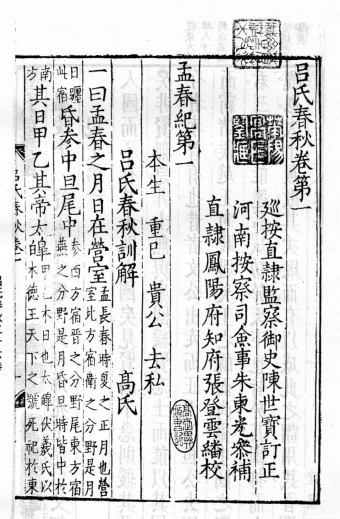 呂氏春秋卷第一
巡按直隸監察御史陳世寶訂正
河南按察司僉事朱東光叅補
直隸鳳陽府知府張登雲繙校
孟春紀第一
本生 重己 貴公 去私
呂氏春秋訓解 高氏
一曰孟春之月日在營室
孟長春時夏之正月也營
室北方宿衛之分野是月
日躔
此宿
昏參中旦尾中
參西方宿晉之分野尾東方宿
燕之分野是月昏旦時皆中於
南
方
其日甲乙其帝太皥
甲乙木日也太皥伏羲氏以
木德王天下之號死祀於東